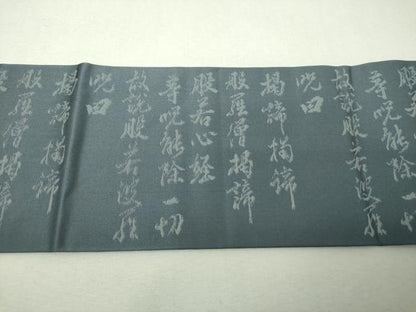 尊呪能除一切
故説般若波羅
呪曰
掲諦掲諦
般羅僧掲諦
般若心経
尊呪能除一切
故説般若波羅
呪曰
掲諦掲諦
般羅僧掲諦